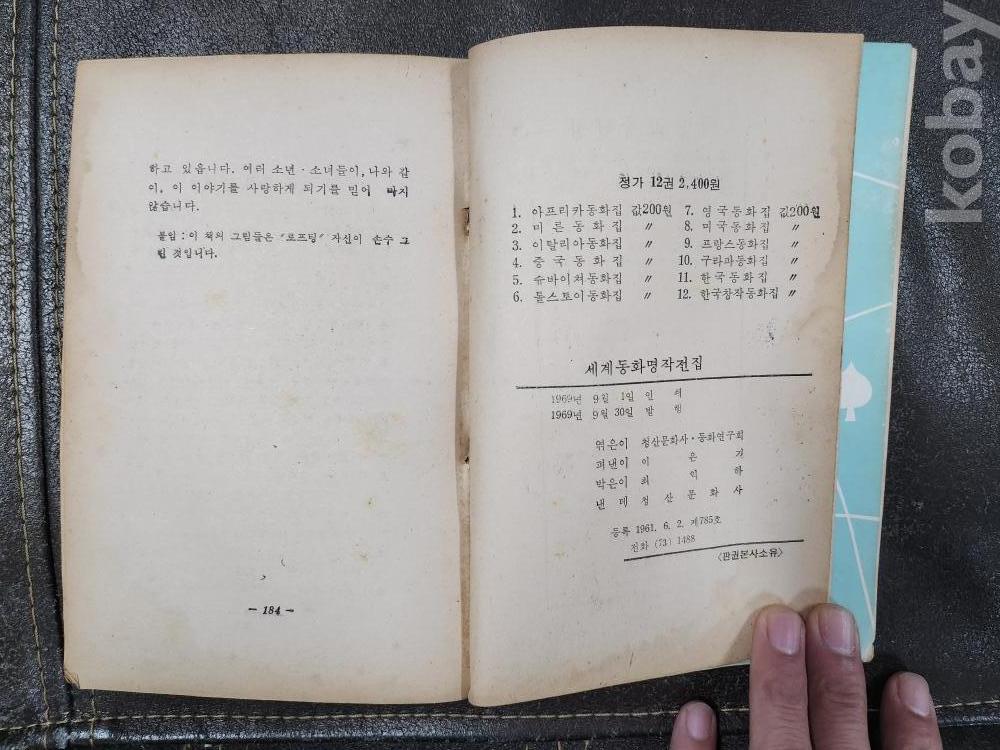 하고 있읍니다. 여러 소년 · 소녀들이, 나와 같
이, 이 이야기를 사랑하게 되기를 믿어 마지
않습니다.
붙임 : 이 책의 그림들은 “로프팅” 자신이 손수 그
린 것입니다.
— 184 —
정가 12권 2,400원
1. 아프리카동화집 값200원 7. 영국동화집 값200원
2. 미른동화집 〃 8. 미국동화집 〃
3. 이탈리아동화집 〃 9. 프랑스동화집 〃
4. 중국동화집 〃 10. 구라파동화집 〃
5. 슈바이쳐동화집 〃 11. 한국동화집 〃
6. 톨스토이동화집 〃 12. 한국창작동화집 〃
세계동화명작전집
1969년 9월 1일 인쇄
1969년 9월 30일 발행
엮은이 청산문화사·동화연구회
펴낸이 이은기
박은이 최익하
낸데 청산문화사
등록 1961. 6. 2. 제785호
전화 (73) 1488
〈판권본사소유〉
kobay